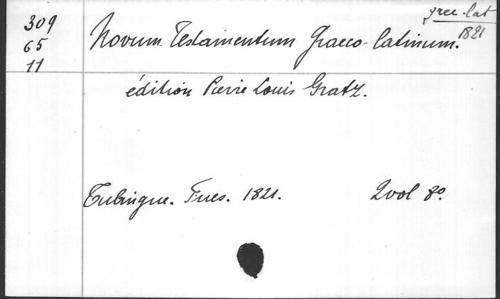 309
65
11
grec-lat
1821
Novum Testamentum Graeco-latinum.
édition Pierre Louis Gratz.
Tubingue. Fues. 1821. 2 vol 8º.